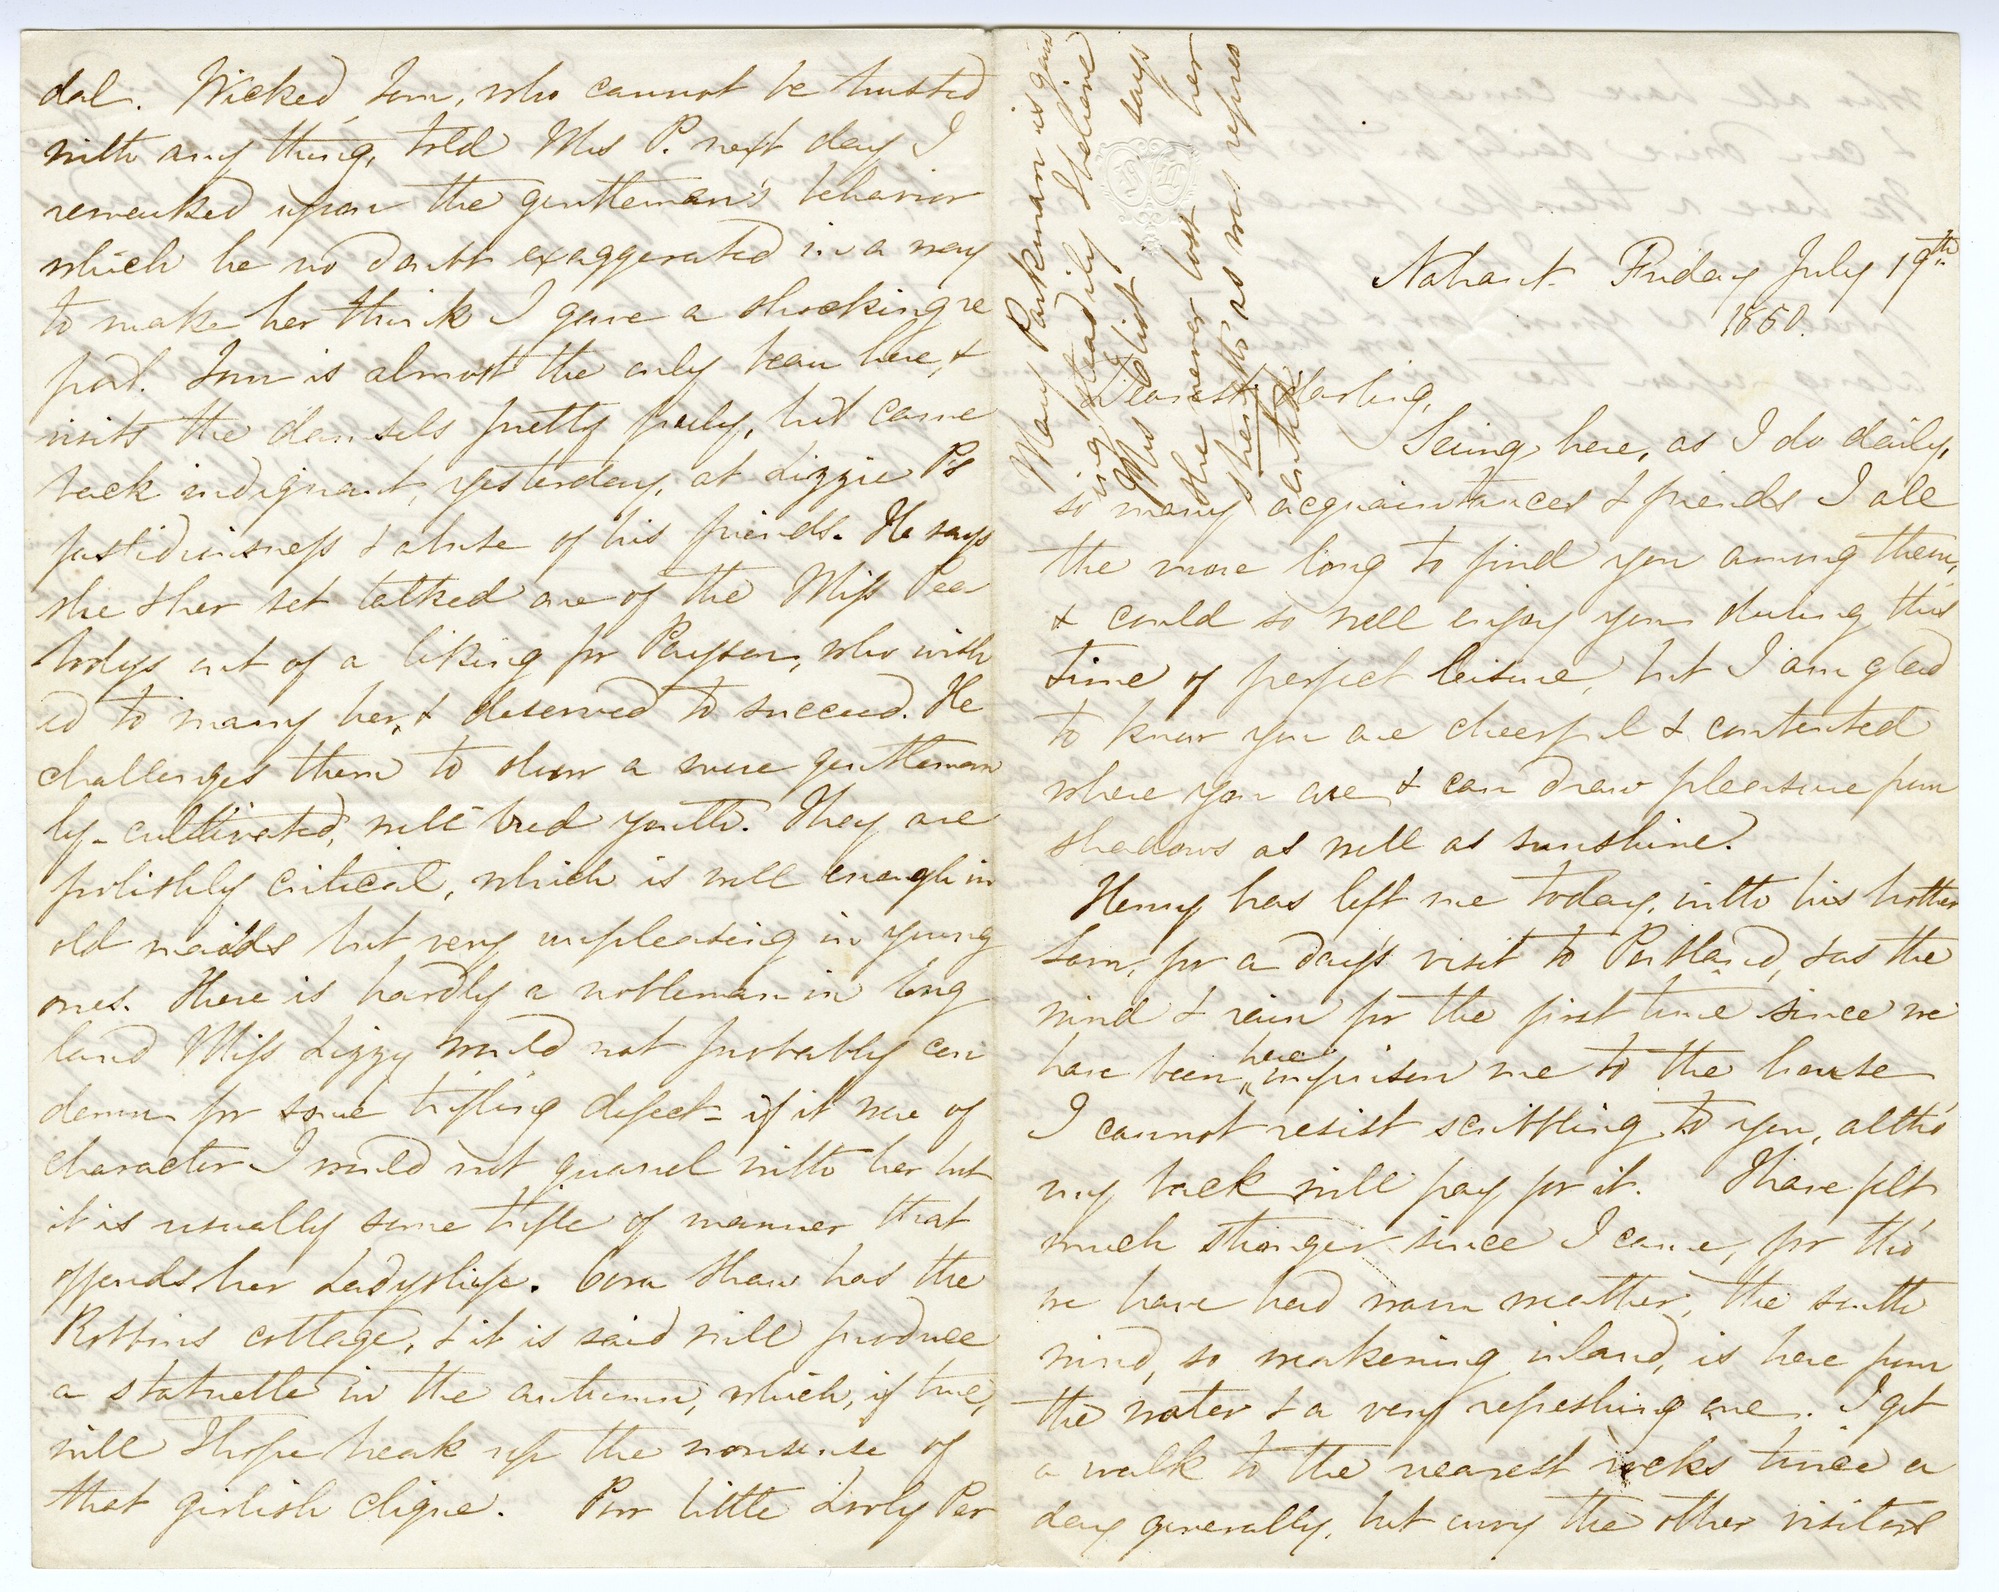 Nahant. Friday July 19th
1850.
Dearest darling,
Seeing here, as I do daily,
so many acquaintances & friends I all
the more long to find you among them,
& could so well enjoy you during this
time of perfect leisure, but I am glad
to know you are cheerful & contented
where you are & can draw pleasure from
shadows as well as sunshine.
Henry has left me today, with his brother
Sam, for a day's visit to Portland, & as the
wind & rain for the first time since we
have been here imprison me to the house
I cannot resist scribbling to you, altho'
my back will pay for it. I have felt
much stronger since I came, for tho'
we have had warm weather, the south
wind, so weakening inland, is here from
the water & a very refreshing one. I get
a walk to the nearest rocks twice a
day generally, but envy the other visitors
dal. Wicked Tom, who cannot be trusted
with any thing, told Mrs P. next day I
remarked upon the gentleman's behavior
which he no doubt exaggerated in a way
to make her think I gave a shocking re
port. Tom is almost the only beau here, &
visits the damsels pretty freely, but came
back indignant, yesterday, at Lizzie P's
fastidiousness & abuse of his friends. He says
she & her set talked one of the Miss Pea
bodys out of a liking for Payson, who wish
ed to marry her, & deserved to succeed. He
challenges them to show a more gentleman
ly-cultivated, well bred youth. They are
foolishly critical, which is well enough in
old maids but very unpleasing in young
ones. There is hardly a nobleman in Eng
land Miss Lizzy would not probably con
demn for some trifling defect - if it were of
character I would not quarrel with her but
it is usually some trifle of manner that
offends her Ladyship. Cora Shaw has the
Robbins cottage, & it is said will produce
a statuette in the autumn, which, if true,
will I hope break up the nonsense of
that girlish clique. Poor little Lively Par
Mary Parkman is gain
ing steadily I believe
Mrs Eliot says
she never lost her
strength as was reported